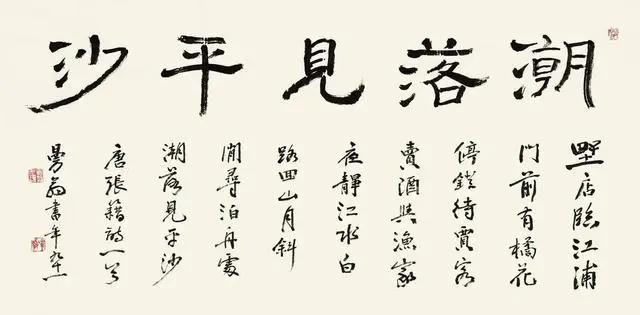 潮落見平沙
墅店臨江浦
門前有橘花
停鐙待賈客
賣酒與漁家
夜靜江水白
路回山月斜
閒尋泊舟處
潮落見平沙
唐張籍詩一首
曼翁書年九十一